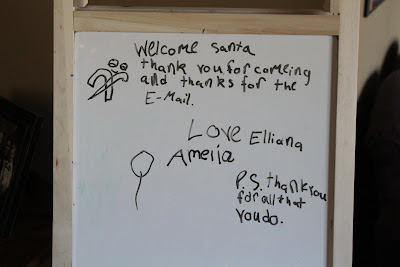 Welcome Santa
thank you for comeing
and thanks for the
E-Mail.
Love Elliana
Ameiia
P.S. thank you
for all that
you do.